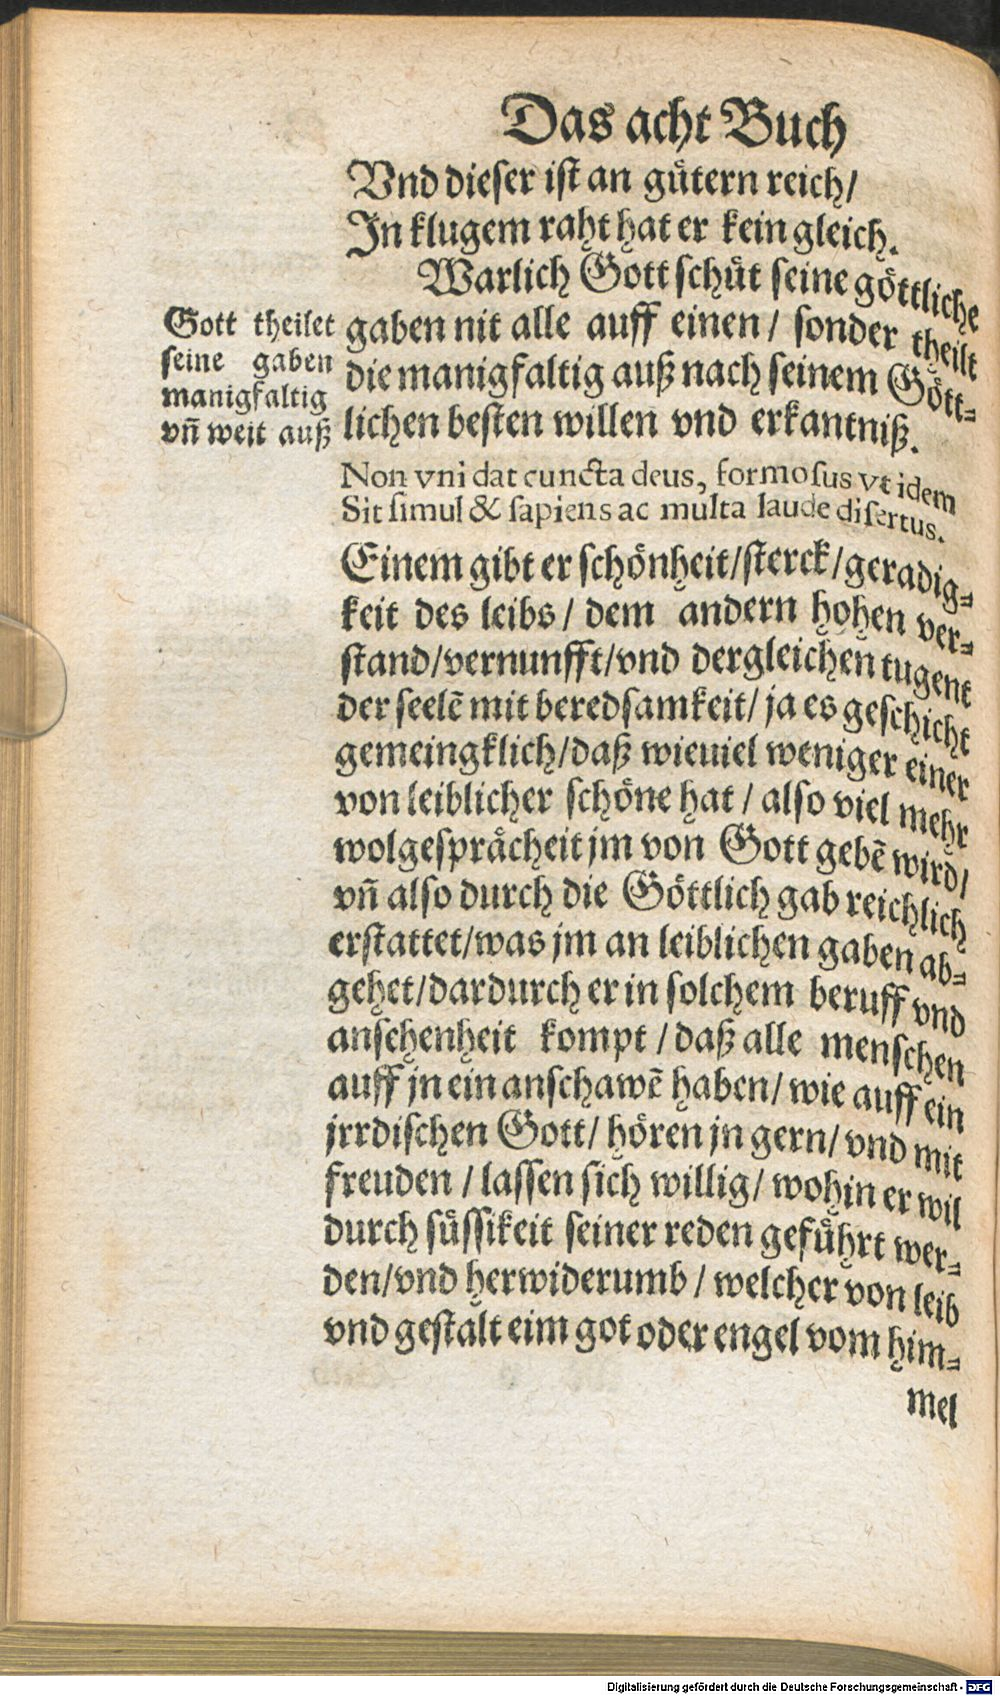 Das acht Buch
Vnd dieser ist an gütern reich/
In klugem raht hat er kein gleich.
Warlich Gott schüt seine göttliche
gaben nit alle auff einen/ sonder theilt
die manigfaltig auß nach seinem Gött-
lichen besten willen vnd erkantniß.
Gott theilet
seine gaben
manigfaltig
vñ weit auß
Non vni dat cuncta deus, formosus vt idem
Sit simul & sapiens ac multa laude disertus.
Einem gibt er schönheit/sterck/geradig-
keit des leibs/ dem andern hohen ver-
stand/vernunfft/vnd dergleichen tugent
der seelē mit beredsamkeit/ ja es geschicht
gemeingklich/daß wieuiel weniger einer
von leiblicher schöne hat/ also viel mehr
wolgesprächeit jm von Gott gebē wird/
vñ also durch die Göttlich gab reichlich
erstattet/was jm an leiblichen gaben ab-
gehet/dardurch er in solchem beruff vnd
ansehenheit kompt/daß alle menschen
auff jn ein anschawē haben/ wie auff ein
jrrdischen Gott/ hören jn gern/ vnd mit
freuden/ lassen sich willig/ wohin er wil
durch süssikeit seiner reden geführt wer-
den/vnd herwiderumb/ welcher von leib
vnd gestalt eim got oder engel vom him-
mel
Digitalisierung gefördert durch die Deutsche Forschungsgemeinschaft - DFG